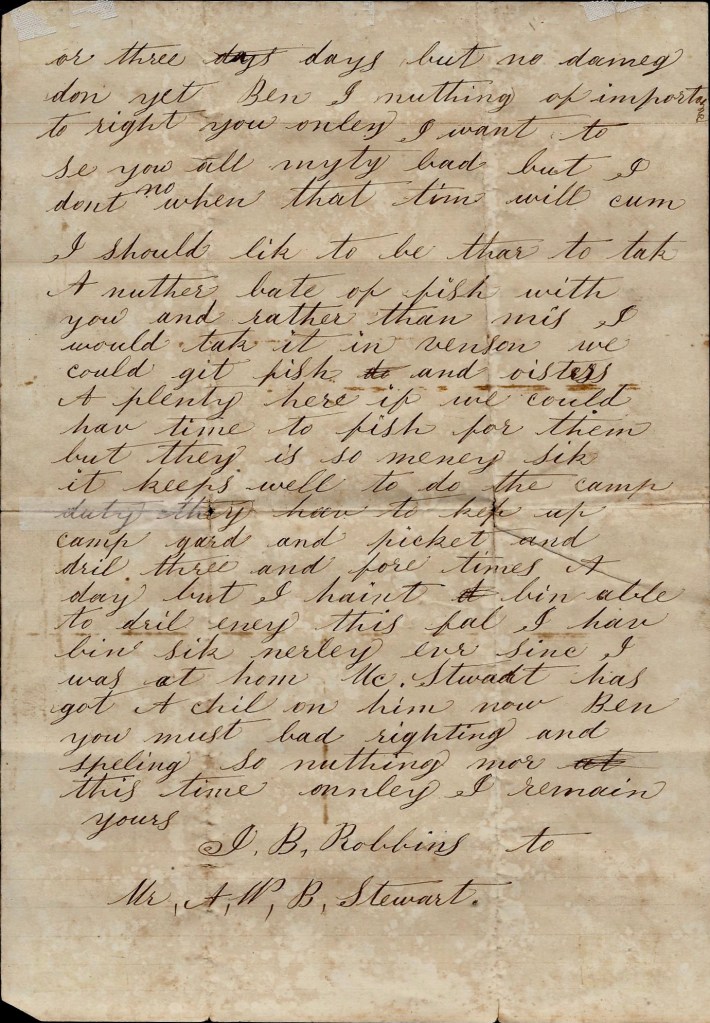 or three days days but no dameg
don yet Ben I nuthing of importance
to right you onley I want to
se you all myty bad but I
dont no when that tim will cum
I should lik to be thar to tak
A nuther bate of fish with
you and rather than mis I
would tak it in venson we
could git fish to and oisters
A plenty here if we could
hav time to fish for them
but they is so meney sik
it keeps well to do the camp
duty they hav to kep up
camp gard and picket and
dril three and fore times A
day but I haint bin able
to dril eney this fal I hav
bin sik nerley evr sinc I
was at hom Mc. Stwart has
got A chil on him now Ben
you must bad righting and
speling so nuthing mor at
this time onnley I remain
yours
J. B. Robbins to
Mr, A, W, B, Stewart.